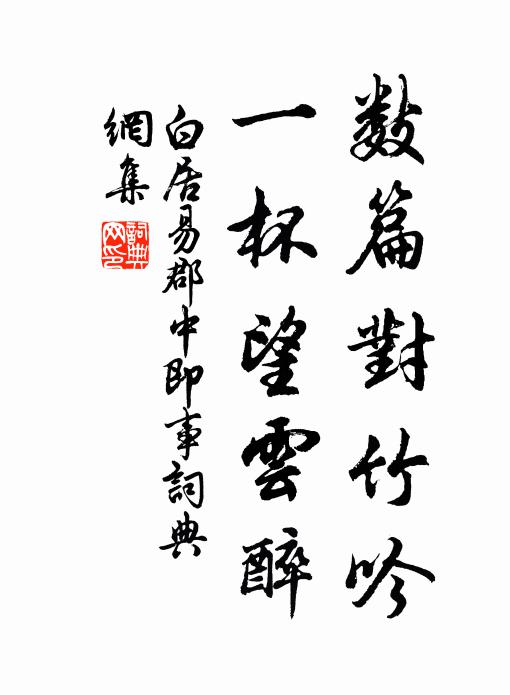 數篇對竹吟
一杯望雲醉
白居易郡中即事詞典
網集
詞典
网印